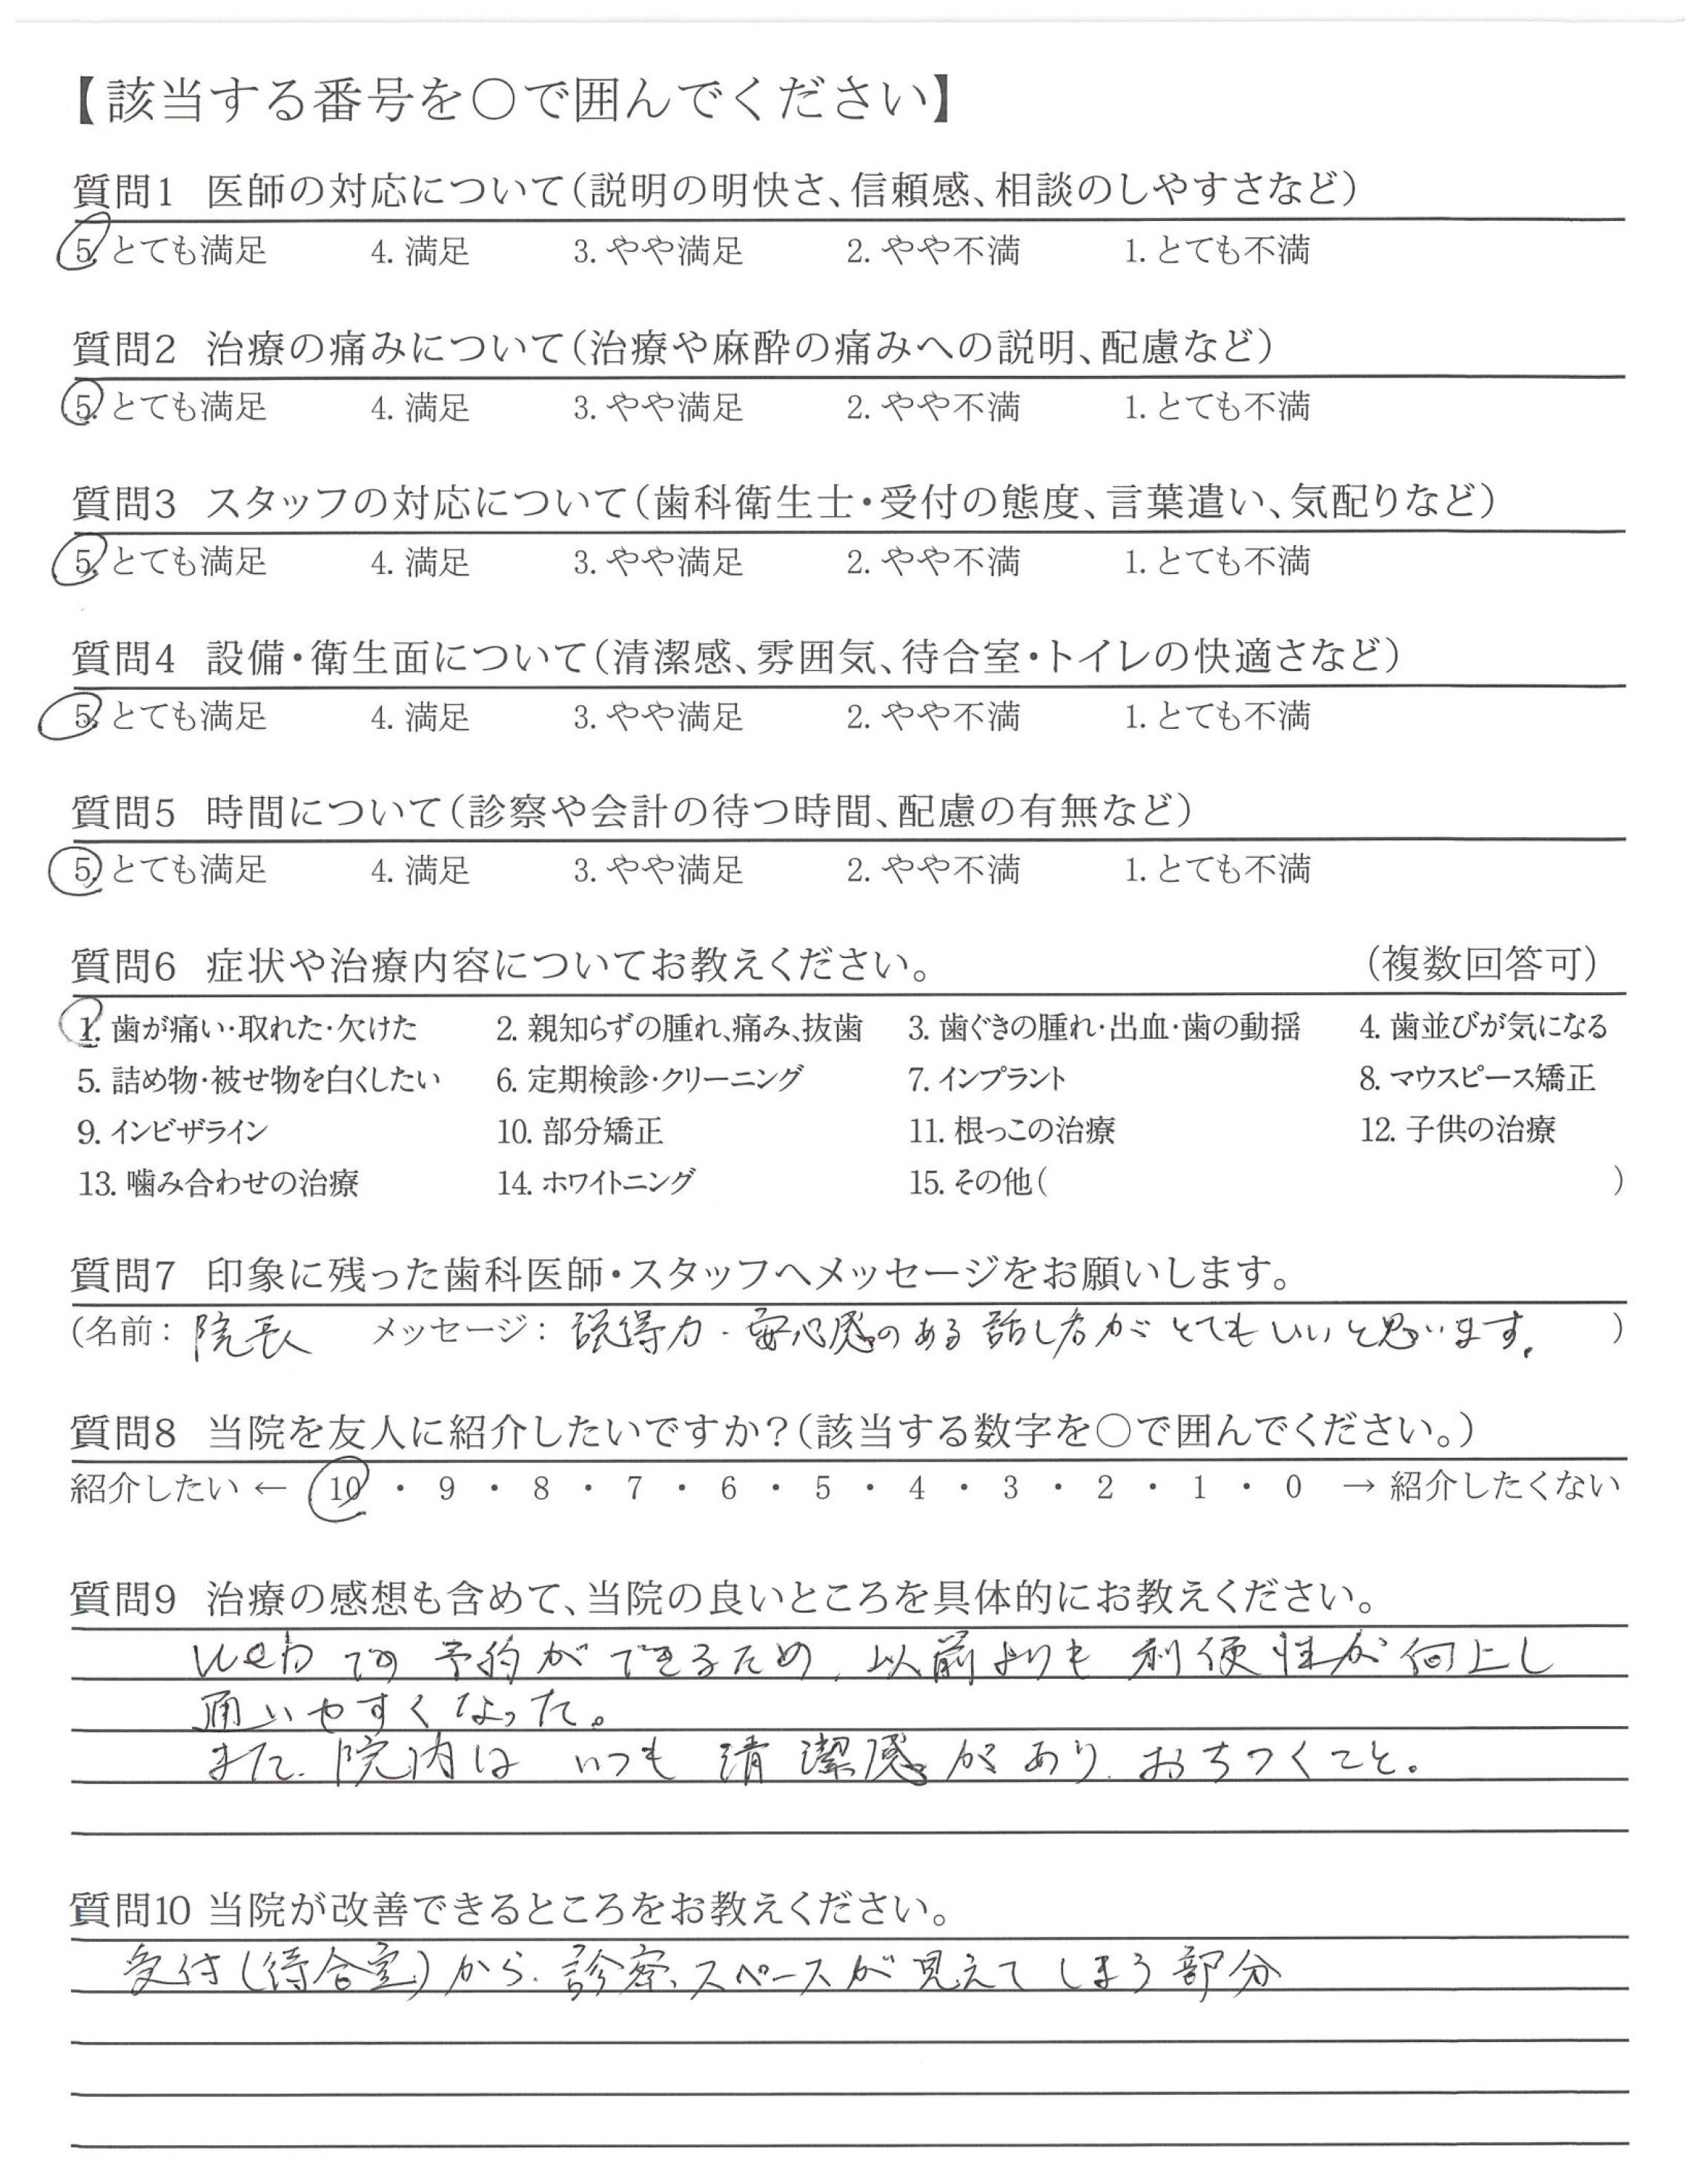 【該当する番号を○で囲んでください】
質問1 医師の対応について(説明の明快さ、信頼感、相談のしやすさなど)
5. とても満足 4. 満足 3. やや満足 2. やや不満 1. とても不満
質問2 治療の痛みについて(治療や麻酔の痛みへの説明、配慮など)
5. とても満足 4. 満足 3. やや満足 2. やや不満 1. とても不満
質問3 スタッフの対応について(歯科衛生士・受付の態度、言葉遣い、気配りなど)
5. とても満足 4. 満足 3. やや満足 2. やや不満 1. とても不満
質問4 設備・衛生面について(清潔感、雰囲気、待合室・トイレの快適さなど)
5. とても満足 4. 満足 3. やや満足 2. やや不満 1. とても不満
質問5 時間について(診察や会計の待つ時間、配慮の有無など)
5. とても満足 4. 満足 3. やや満足 2. やや不満 1. とても不満
質問6 症状や治療内容についてお教えください。 (複数回答可)
1. 歯が痛い・取れた・欠けた 2. 親知らずの腫れ、痛み、抜歯 3. 歯ぐきの腫れ・出血・歯の動揺 4. 歯並びが気になる
5. 詰め物・被せ物を白くしたい 6. 定期検診・クリーニング 7. インプラント 8. マウスピース矯正
9. インビザライン 10. 部分矯正 11. 根っこの治療 12. 子供の治療
13. 噛み合わせの治療 14. ホワイトニング 15. その他( )
質問7 印象に残った歯科医師・スタッフへメッセージをお願いします。
(名前: 院長 メッセージ: 説得力・安心感のある話し方がとてもいいと思います。 )
質問8 当院を友人に紹介したいですか?(該当する数字を○で囲んでください。)
紹介したい ← 10 ・ 9 ・ 8 ・ 7 ・ 6 ・ 5 ・ 4 ・ 3 ・ 2 ・ 1 ・ 0 → 紹介したくない
質問9 治療の感想も含めて、当院の良いところを具体的にお教えください。
Webでの予約ができるため、以前よりも利便性が向上し
通いやすくなった。
また、院内はいつも清潔感があり、おちつくこと。
質問10 当院が改善できるところをお教えください。
受付(待合室)から、診察スペースが見えてしまう部分